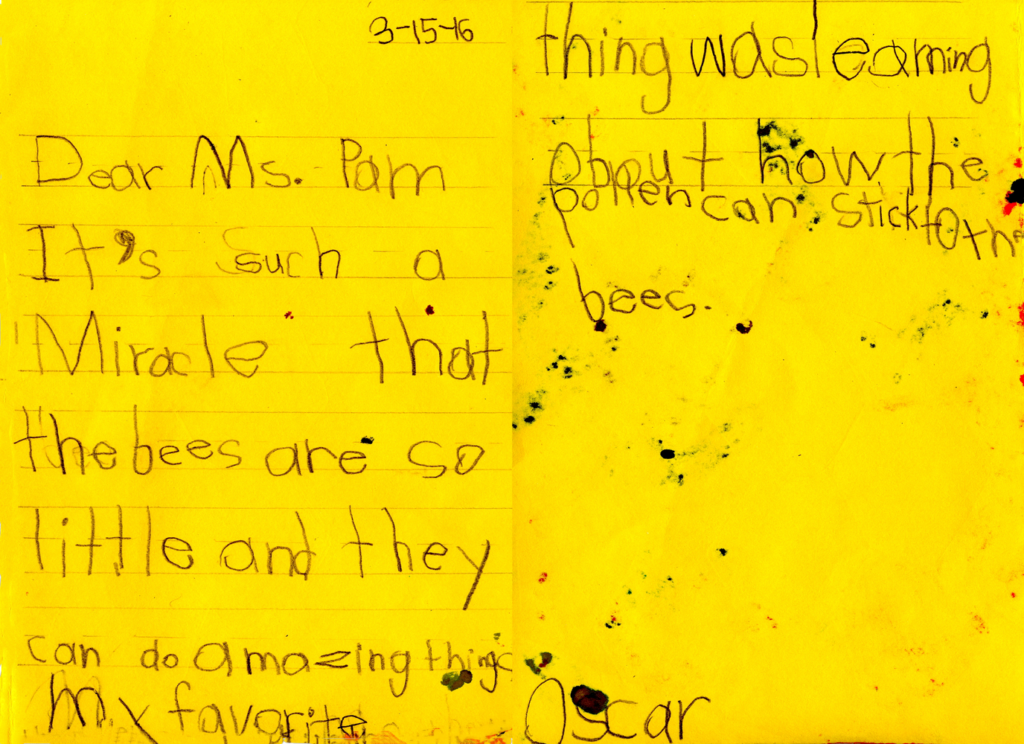 3-15-16
Dear Ms. Pam
It's such a
Miracle that
the bees are so
little and they
can do amazing things
My favorite
thing was learning
about how the
pollen can stick to the
bees.
Oscar